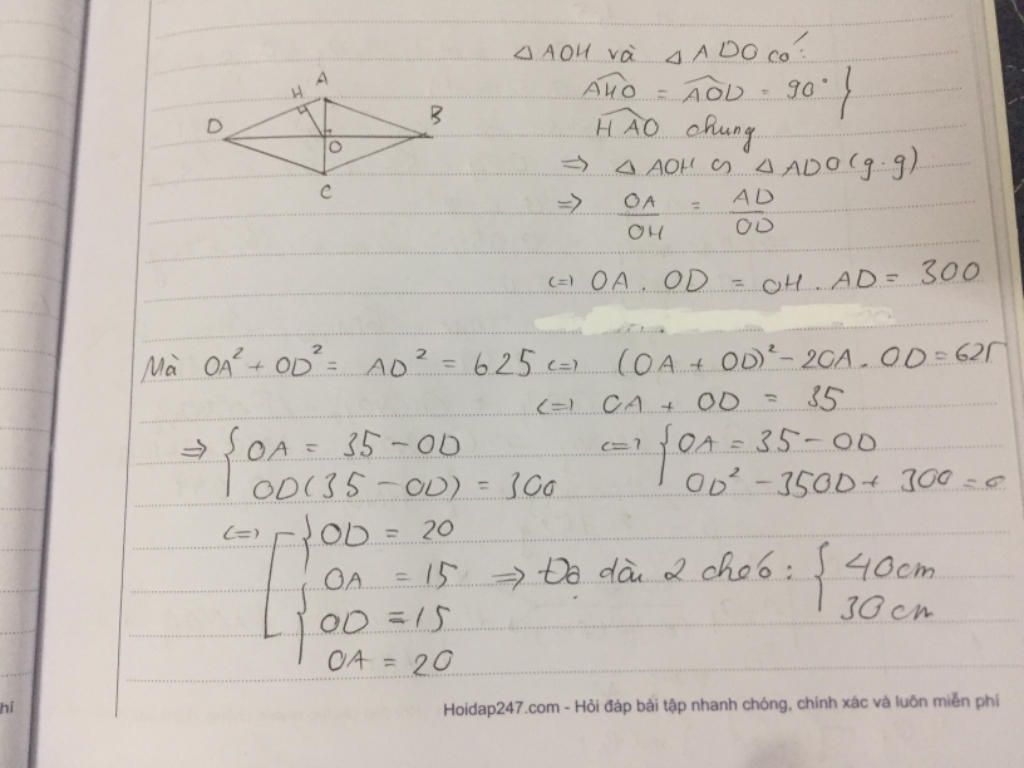 △AOH và △ADO có:
A
H
D
B
O
C
AHO = AOD = 90° }
HAO chung
=> △AOH ∽ △ADO (g.g)
=> OA/OH = AD/OD
(=) OA . OD = OH . AD = 300
Mà OA² + OD² = AD² = 625 (=) (OA + OD)² - 2OA . OD = 625
(=) OA + OD = 35
=> { OA = 35 - OD (=) { OA = 35 - OD
OD(35 - OD) = 300 OD² - 35OD + 300 = 0
(=) [ { OD = 20
OA = 15 => Độ dài 2 chéo : { 40cm
{ OD = 15 30cm
OA = 20
hí
Hoidap247.com - Hỏi đáp bài tập nhanh chóng, chính xác và luôn miễn phí